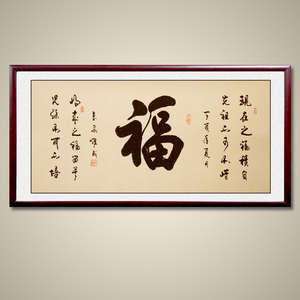 現在之福積自
先祖不可不惜
丁酉年夏月
福
將來之福留于
兒孫不可不培